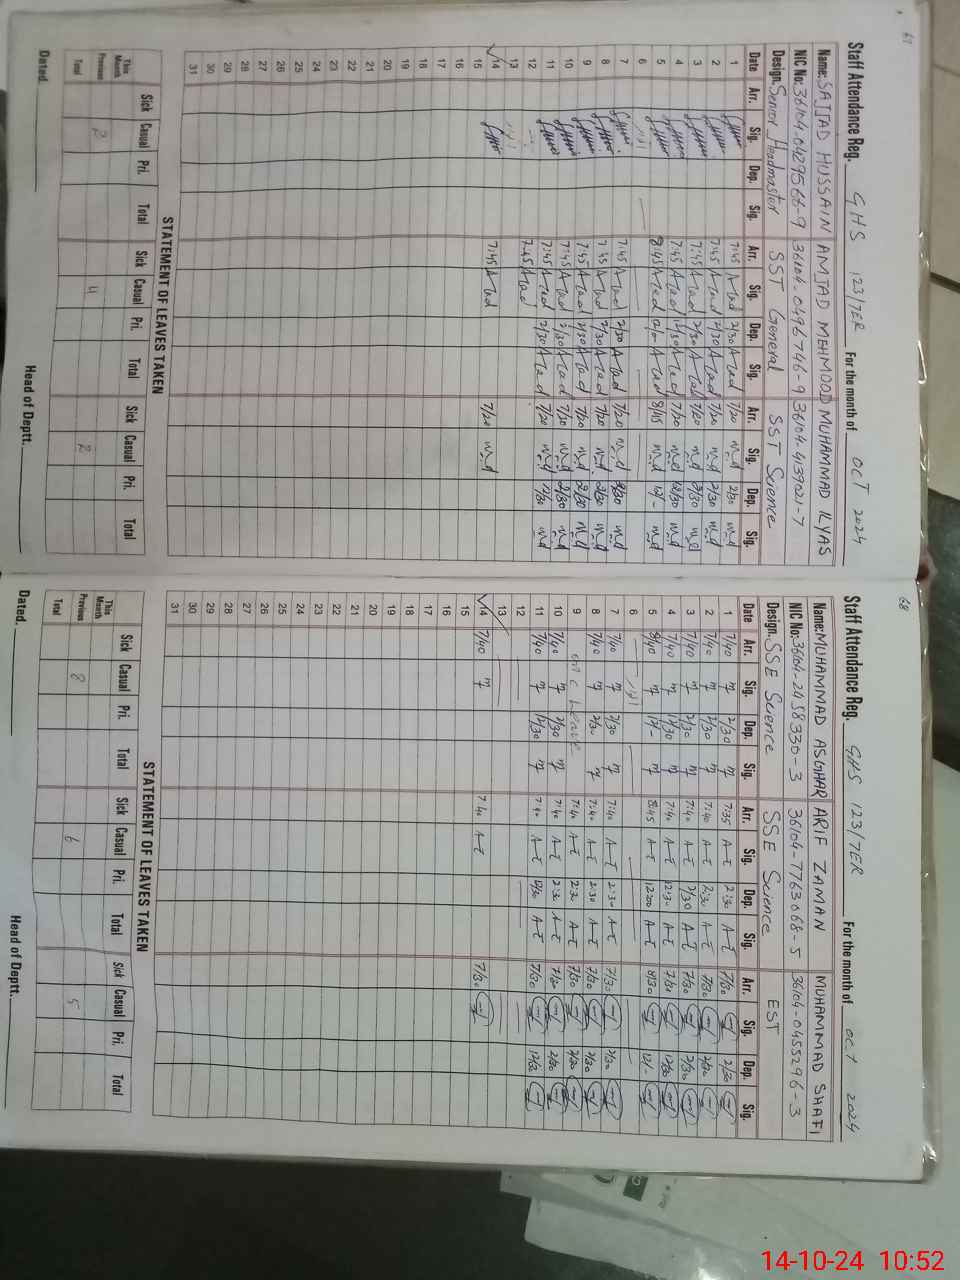 67
Staff Attendance Reg. GHS 123/7ER For the month of OCT 2024
Name: SAJJAD HUSSAIN AMJAD MEHMOOD MUHAMMAD ILYAS
NIC No: 36104-0496746-9 36104-4139021-7
Design. Senior Headmaster SST General SST Science
Date Arr. Sig. Dep. Sig. Arr. Sig. Dep. Sig. Arr. Sig. Dep. Sig.
1 7:45 2/30 7/20 2/30
2 7:45 2/30 7/20 2/30
3 7:45 2/30 7/20 2/30
4 7:45 12/30 7/20 12/30
5 8:45 8/45 12/-
6
7 7:45 2/30 7/20 2/30
8 7:45 2/30 7/20 2/30
9 7:45 2/30 7/20 2/30
10 7:45 2/30 7/20 2/30
11 7:45 12/30 7/20 12/30
12 7:45
13
14 7:45 7/20
15
16
17
18
19
20
21
22
23
24
25
26
27
28
29
30
31
STATEMENT OF LEAVES TAKEN
Sick Casual Pri. Total Sick Casual Pri. Total Sick Casual Pri. Total
This Month
Previous 2 4 2
Total
Dated. Head of Deptt.
68
Staff Attendance Reg. GHS 123/7ER For the month of OCT 2024
Name: MUHAMMAD ASGHAR ARIF ZAMAN MUHAMMAD SHAFI
NIC No: 36104-2458330-3 36104-7763068-5 36104-0455296-3
Design. SSE Science SSE Science EST
Date Arr. Sig. Dep. Sig. Arr. Sig. Dep. Sig. Arr. Sig. Dep. Sig.
1 7/40 2/30 7:35 2:30 7/30 2/30
2 7/40 2/30 7:40 2:30 7/30 2/30
3 7/40 2/30 7:40 2/30 7/30 2/30
4 7/40 12/30 7:40 12:30 7/30 12/30
5 8/40 12/- 8:45 12:00 8/30 12/-
6
7 7/40 2/30 7:40 2:30 7/30 2/30
8 7/40 2/30 7:40 2:30 7/30 2/30
9 on C Leave 7:40 2:30 7/30 2/30
10 7/40 2/30 7:40 2:30 7/30 2/30
11 7/40 12/30 7:40 12/30 7/30 12/30
12
13
14 7/40 7:40 7/30
15
16
17
18
19
20
21
22
23
24
25
26
27
28
29
30
31
STATEMENT OF LEAVES TAKEN
Sick Casual Pri. Total Sick Casual Pri. Total Sick Casual Pri. Total
This Month
Previous 8 6 5
Total
Dated. Head of Deptt.
14-10-24 10:52